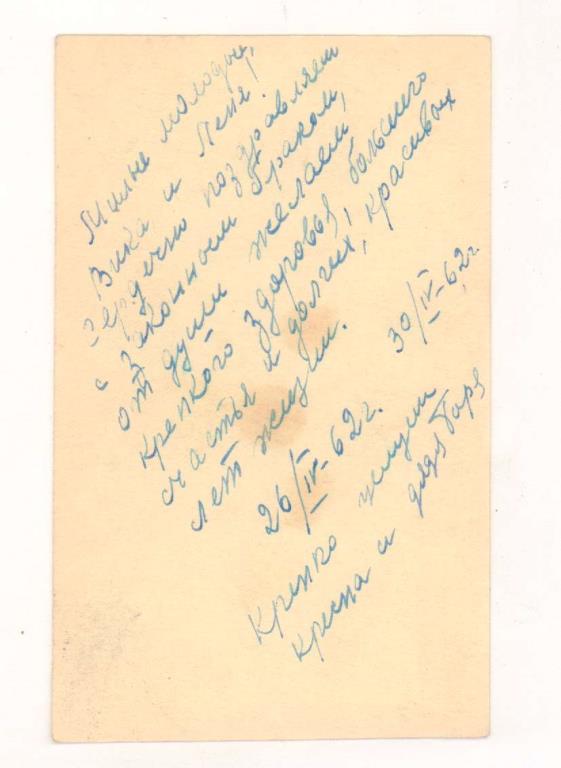 Милые молодые,
Вика и Лёня!
Сердечно поздравляем
с Законным браком,
от души желаем
крепкого здоровья, большого
счастья и долгих, красивых
лет жизни.
26/IV-62г. 30/IV-62г.
Крепко целуем
кресна и дядя Боря